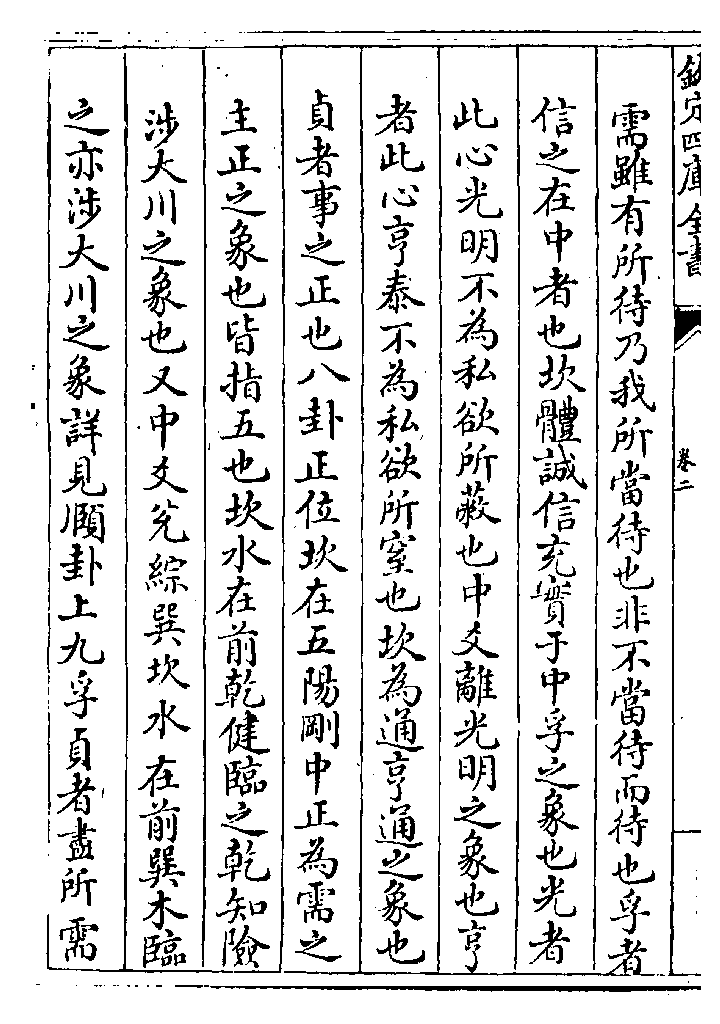 欽定四庫全書
卷二
需雖有所待乃我所當待也非不當待而待也孚者
信之在中者也坎體誠信充實于中孚之象也光者
此心光明不為私欲所蔽也中爻離光明之象也亨
者此心亨泰不為私欲所窒也坎為通亨通之象也
貞者事之正也八卦正位坎在五陽剛中正為需之
主正之象也皆指五也坎水在前乾健臨之乾知險
涉大川之象也又中爻兊綜巽坎水在前巽木臨
之亦涉大川之象詳見頤卦上九孚貞者盡所需